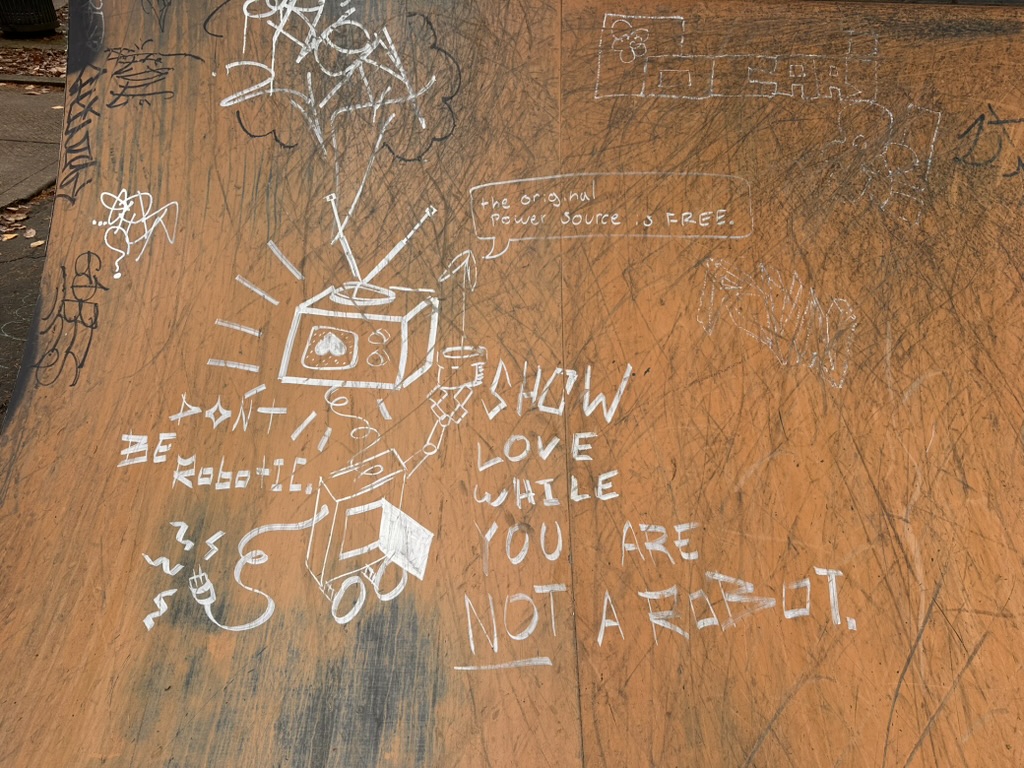 the original
power source is FREE.
DON'T
BE
ROBOTIC.
SHOW
LOVE
WHILE
YOU ARE
NOT A ROBOT.